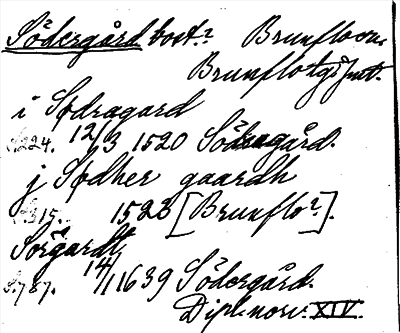 Södergård bost.? Brunflo sn.
Brunflo tgs Jmt.
i Sødragard
S. 224. 12/3 1520 Södragård.
j Sødher gaardh
S. 315. 1523 [Brunflo?].
Sörgardt
S. 787. 14/1 1639 Södergård.
Dipl. norv. XIV.